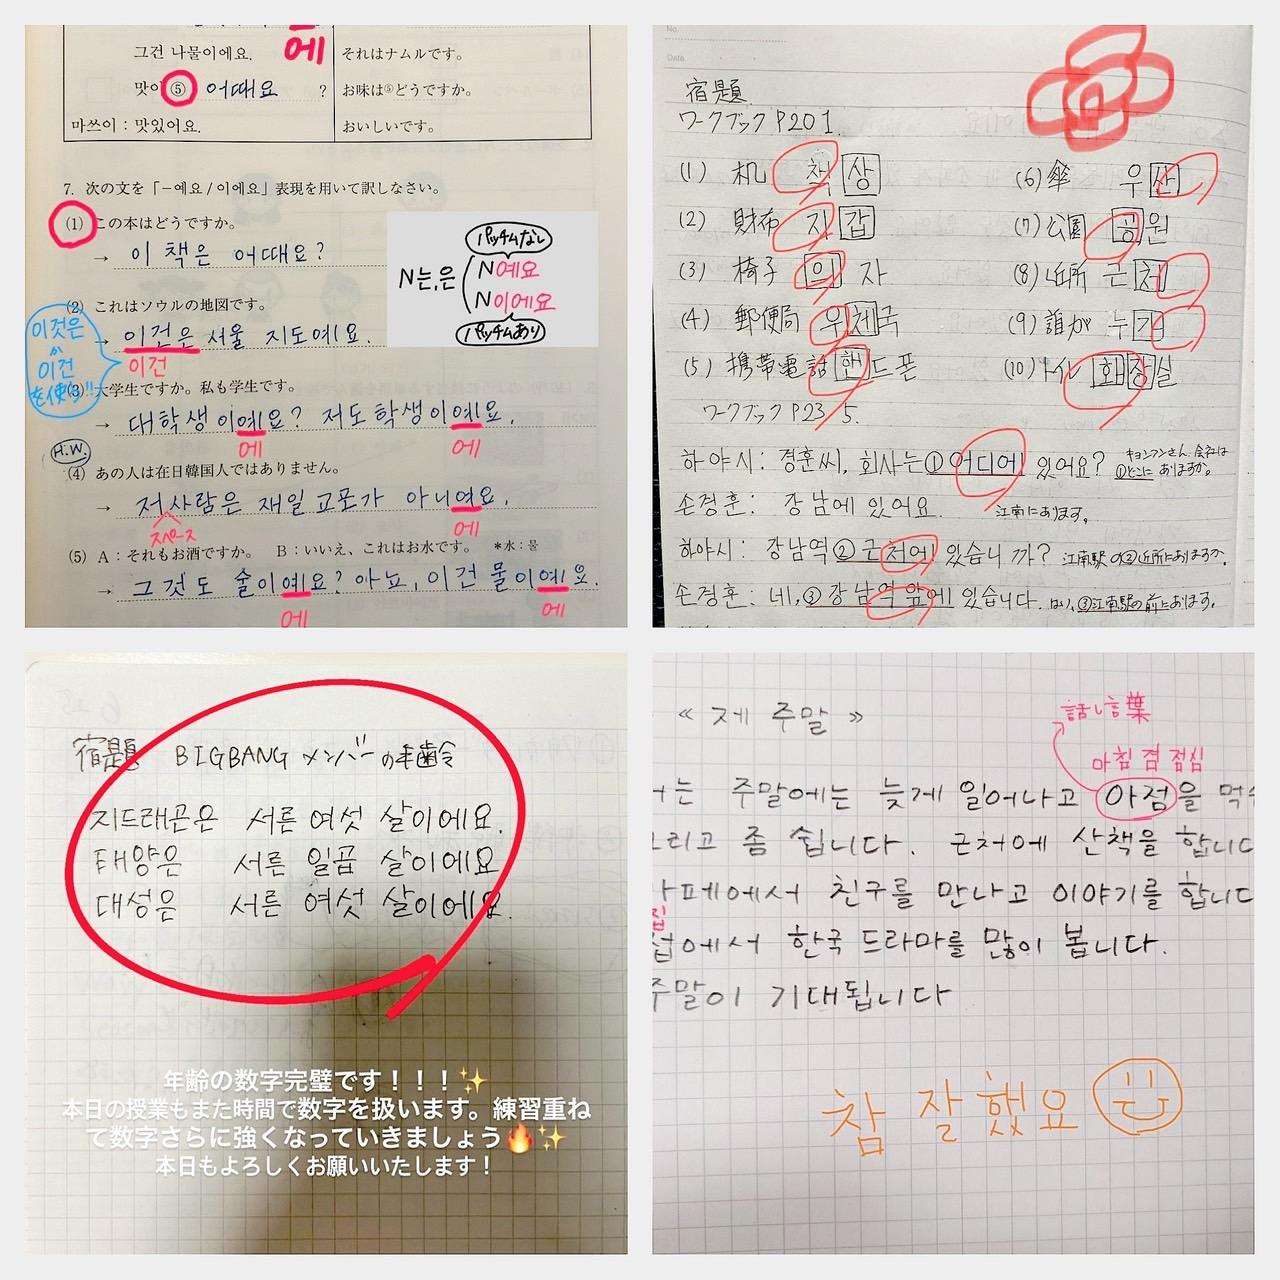 에
그건 나물이에요.
それはナムルです。
맛이 ⑤ 어때요 ?
お味は⑤どうですか。
마쓰이 : 맛있어요.
おいしいです。
7. 次の文を「-예요 / 이에요」表現を用いて訳しなさい。
(1) この本はどうですか。
→ 이 책은 어때요?
パッチムなし
N는,은
N예요
N이에요
パッチムあり
(2) これはソウルの地図です。
→ 이건은 서울 지도예요.
이건
이것은
か
이건
を使う!!
(3) 大学生ですか。私も学生です。
→ 대학생이예요? 저도 학생이예요.
에
에
H.W.
(4) あの人は在日韓国人ではありません。
→ 저사람은 재일교포가 아니여요.
スペース
에
(5) A : それもお酒ですか。 B : いいえ、これはお水です。 *水 : 물
→ 그것도 술이예요? 아뇨, 이건 물이예요.
에
에
No.
Date
宿題
ワークブック P201.
(1) 机 책상
(2) 財布 지갑
(3) 椅子 의자
(4) 郵便局 우체국
(5) 携帯電話 핸드폰
(6) 傘 우산
(7) 公園 공원
(8) 近所 근처
(9) 誰か 누가
(10) トイレ 화장실
ワークブック P23 5.
하야시: 경훈씨, 회사는 ① 어디에 있어요?
キョンフンさん、会社は
①どこに ありますか。
손경훈: 강남에 있어요.
江南にあります。
하야시: 강남역 ② 근처에 있습니까?
江南駅の②近所にありますか。
손경훈: 네, ③ 강남역 앞에 있습니다.
はい、③江南駅の前にあります。
宿題 BIGBANG メンバーの年齢
지드래곤은 서른 여섯 살이에요.
태양은 서른 일곱 살이에요
대성은 서른 여섯 살이에요.
年齢の数字完璧です！！！✨
本日の授業もまた時間で数字を扱います。練習重ね
て数字さらに強くなっていきましょう🔥✨
本日もよろしくお願いいたします！
« 제 주말 »
話し言葉
아침 겸 점심
는 주말에는 늦게 일어나고 아점을 먹
리고 좀 쉽니다. 근처에 산책을 합니다
페에서 친구를 만나고 이야기를 합니다
집
에서 한국 드라마를 많이 봅니다.
주말이 기대됩니다
참 잘했요